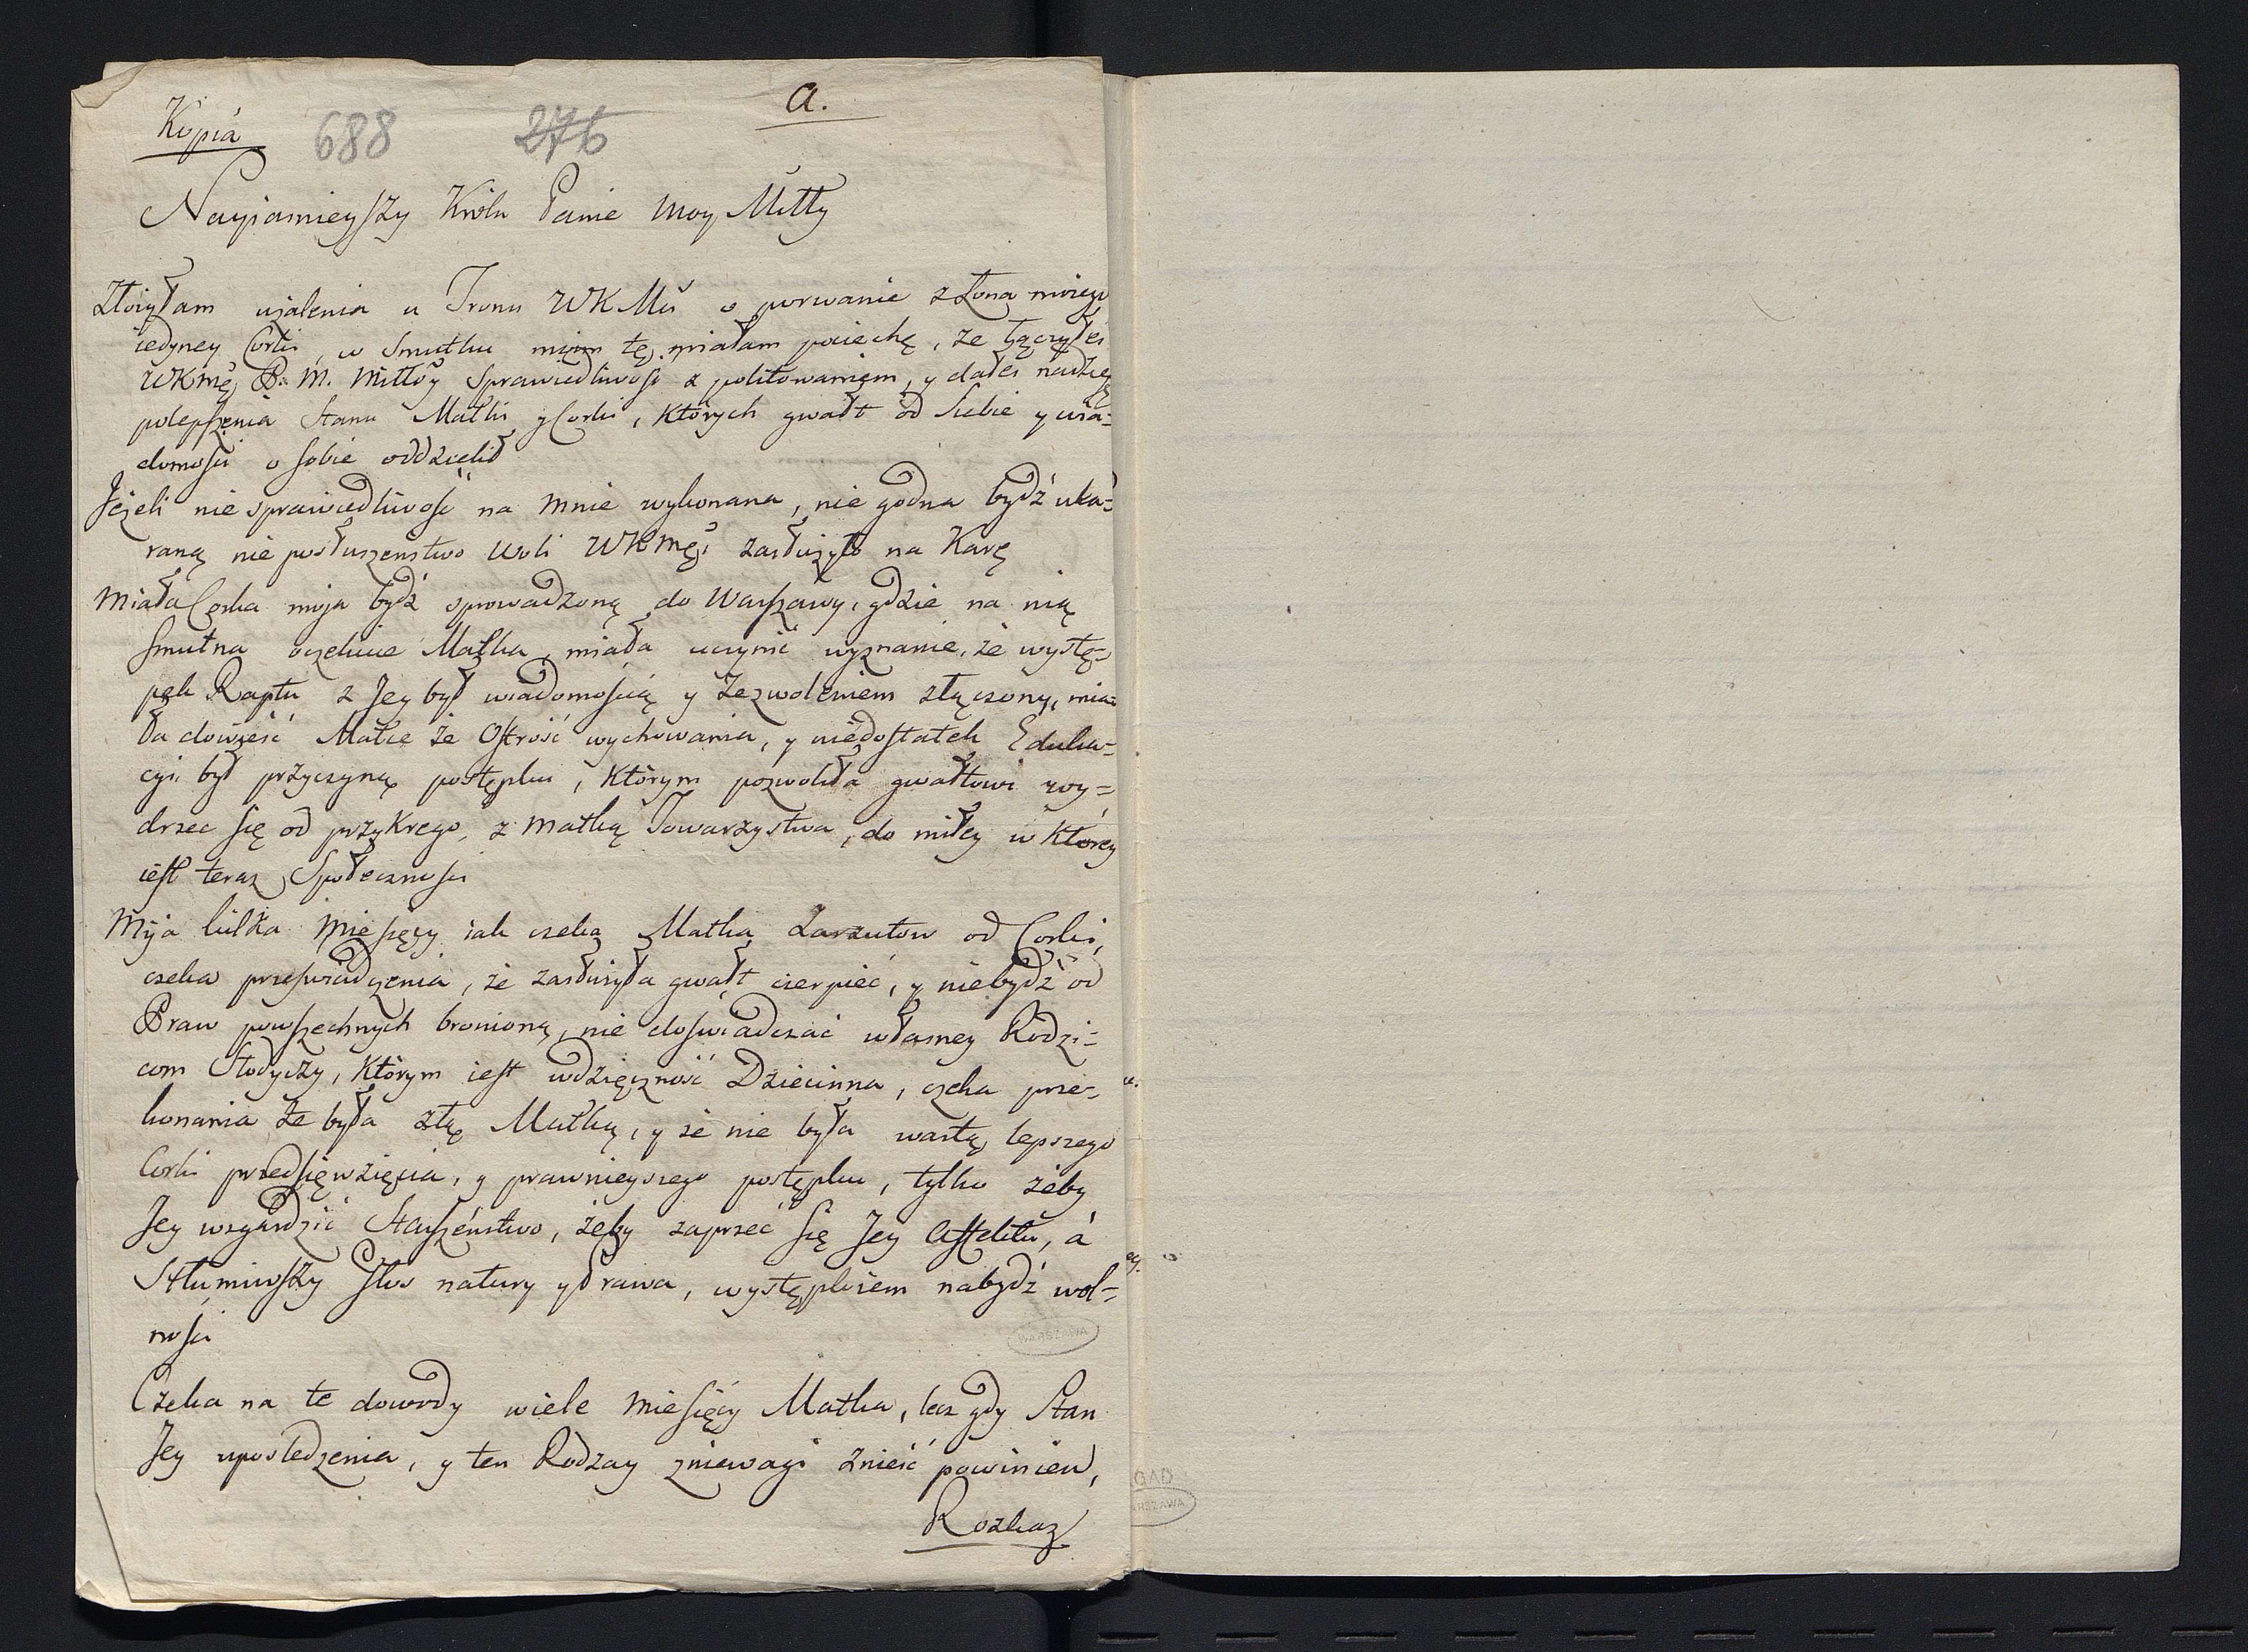 a.
Kopia 688 276
Nayiasnieyszy Królu Panie moy Miłłty
Złożyłam użalenia u Tronu WKMci o porwanie z Łona moiego
iedyney Corki, w Smutku moim tę miałam pociechę, że łączyłeś
WKMć P. M. Miłłoy Sprawiedliwość z politowaniem, y dałeś nadzieię
polepszenia Stanu Matki y Corki, których gwałt od siebie y wia=
domości o sobie oddzielił
Jeżeli niesprawiedliwość na mnie wykonana, nie godna bydź uka=
raną nieposłuszenstwo woli WKMći zasłużyło na Karę
Miała Corka moja bydź sprowadzoną do Warszawy, gdzie na nią
smutna oczekuie Matka, miała uczynić wyznanie, że wystę=
pek Raptu z Jey był wiadomością y zezwoleniem złączony, mia=
ła dowieść Matce że Ostrość wychowania, y niedostatek Eduka=
cyi był przyczyną postępku, którym pozwoliła gwałtowi wy=
drzec się od przykrego z Matką Towarzystwa, do miłey w którey
iest teraz Społecznosci
Mija kilka Miesięcy iak czeka Matka Zarzutow od Corki,
czeka przeswiadczenia, że zasłużyła gwałt cierpieć, y niebydź od
Praw powszechnych bronioną, nie doswiadczać własney Rodzi=
com Słodyczy, którym iest wdzięczność Dziecinna, czeka prze=
konania że była złą Matką, y że nie była wartą lepszego
Corki przedsięwzięcia, y prawnieyszego postępku, tylko żeby
Jey wzgardzić Starszeństwo, żeby zaprzeć się Jey Affektu, á
Stłumiwszy głos natury y Prawa, występkiem nabydź wol=
nosci
Czeka na te dowody wiele Miesięcy Matka, lecz gdy Stan
Jey upośledzenia, y ten Rodzay zniewagi znieść powinien,
Rozkaz
WARSZAWA
GAD
ARSZAWA